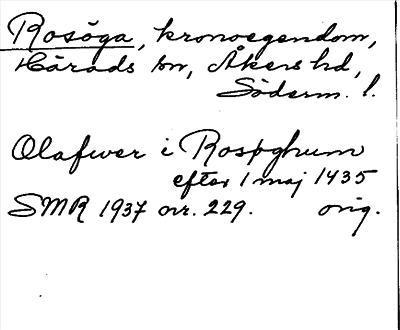 Rosöga, kronoegendom,
Härads sn, Åkers hd,
Söderm. l.
Olafwer i Rospghum
efter 1 maj 1435
SMR 1937 nr. 229. orig.